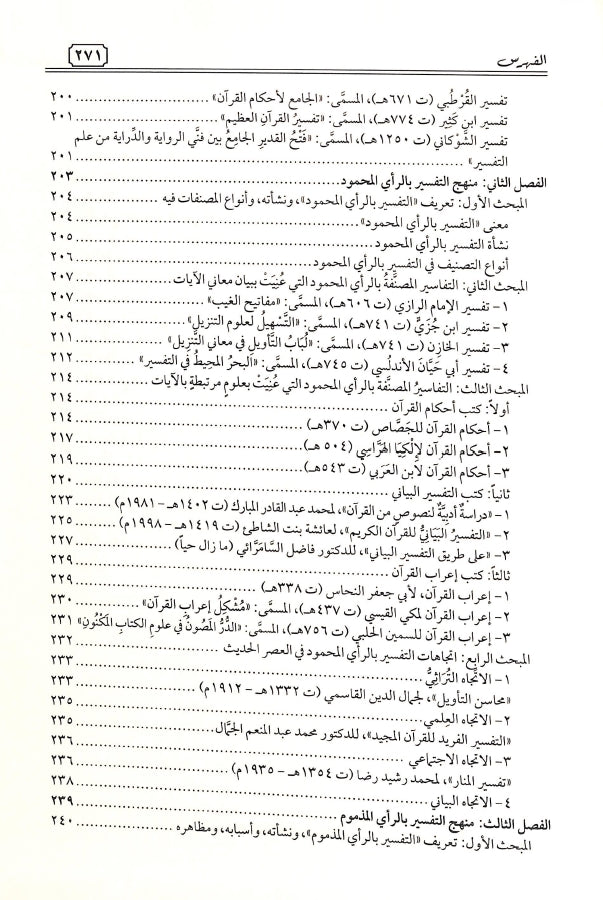 الفهرس ٢٧١
تفسير القُرْطُبي (ت ٦٧١هـ)، المسمَّى: «الجامع لأحكام القرآن» ٢٠٠
تفسير ابن كَثِير (ت ٧٧٤هـ)، المسمَّى: «تفسيرُ القرآنِ العظيم» ٢٠١
تفسير الشَّوْكاني (ت ١٢٥٠هـ)، المسمَّى: «فَتْحُ القديرِ الجامعُ بين فنَّي الرواية والدِّراية من علم
التفسير» ٢٠١
الفصل الثاني: منهج التفسير بالرأي المحمود ٢٠٣
المبحث الأول: تعريف «التفسير بالرأي المحمود»، ونشأته، وأنواع المصنفات فيه ٢٠٤
معنى «التفسير بالرأي المحمود» ٢٠٤
نشأة التفسير بالرأي المحمود ٢٠٥
أنواع التصنيف في التفسير بالرأي المحمود ٢٠٦
المبحث الثاني: التفاسير المصنَّفةُ بالرأي المحمود التي عُنِيَتْ ببيان معاني الآيات ٢٠٧
١- تفسير الإمام الرازي (ت ٦٠٦هـ)، المسمَّى: «مفاتيح الغيب» ٢٠٧
٢- تفسير ابن جُزَيٍّ (ت ٧٤١هـ)، المسمَّى: «التَّسْهِيلُ لعلوم التنزيل» ٢٠٩
٣- تفسير الخازن (ت ٧٤١هـ)، المسمَّى: «لُبَابُ التَّأويل في معاني التَّنْزِيل» ٢١١
٤- تفسير أبي حَيَّانَ الأندلُسي (ت ٧٤٥هـ)، المسمَّى: «البحرُ المحِيطُ في التفسير» ٢١٢
المبحث الثالث: التفاسيرُ المصنَّفة بالرأي المحمود التي عُنِيَتْ بعلومٍ مرتبطةٍ بالآيات ٢١٤
أولاً: كتب أحكام القرآن ٢١٤
١- أحكام القرآن للجَصَّاص (ت ٣٧٠هـ) ٢١٤
٢- أحكام القرآن لإِلْكِيَا الهَرَّاسِي (٥٠٤ هـ) ٢١٧
٣- أحكام القرآن لابن العَرَبي (ت ٥٤٣هـ) ٢١٩
ثانياً: كتب التفسير البياني ٢٢٠
١- «دراسةٌ أدبيَّةٌ لنصوصٍ من القرآن»، لمحمد عبد القادر المبارك (ت ١٤٠٢هـ - ١٩٨١م) ٢٢٣
٢- «التفسيرُ البَيَانيُّ للقرآن الكريم»، لعائشة بنت الشاطئ (ت ١٤١٩هـ - ١٩٩٨م) ٢٢٥
٣- «على طريق التفسير البياني»، للدكتور فاضل السَّامَرَّائي (ما زال حياً) ٢٢٧
ثالثاً: كتب إعراب القرآن ٢٢٩
١- إعراب القرآن، لأبي جعفر النحاس (ت ٣٣٨هـ) ٢٢٩
٢- إعراب القرآن لمكي القيسي (ت ٤٣٧هـ)، المسمَّى: «مُشْكِلُ إعرابِ القرآن» ٢٣٠
٣- إعراب القرآن للسمين الحلبي (ت ٧٥٦هـ)، المسمَّى: «الدُّرُّ المَصُونُ في علومِ الكتابِ المَكْنُونِ» ٢٣١
المبحث الرابع: اتجاهات التفسير بالرأي المحمود في العصر الحديث ٢٣٢
١- الاتِّجاه التُّرَاثِيُّ ٢٣٣
«محاسن التأويل»، لجمال الدين القاسمي (ت ١٣٣٢هـ - ١٩١٢م) ٢٣٣
٢- الاتجاه العِلمي ٢٣٥
«التفسير الفريد للقرآن المجيد»، للدكتور محمد عبد المنعم الجمَّال ٢٣٥
٣- الاتجاه الاجتماعي ٢٣٦
«تفسير المنار»، لمحمد رشيد رضا (ت ١٣٥٤هـ - ١٩٣٥م) ٢٣٦
٤- الاتجاه البياني ٢٣٨
الفصل الثالث: منهج التفسير بالرأي المذموم ٢٣٩
المبحث الأول: تعريف «التفسير بالرأي المذموم»، ونشأته، وأسبابه، ومظاهره ٢٤٠